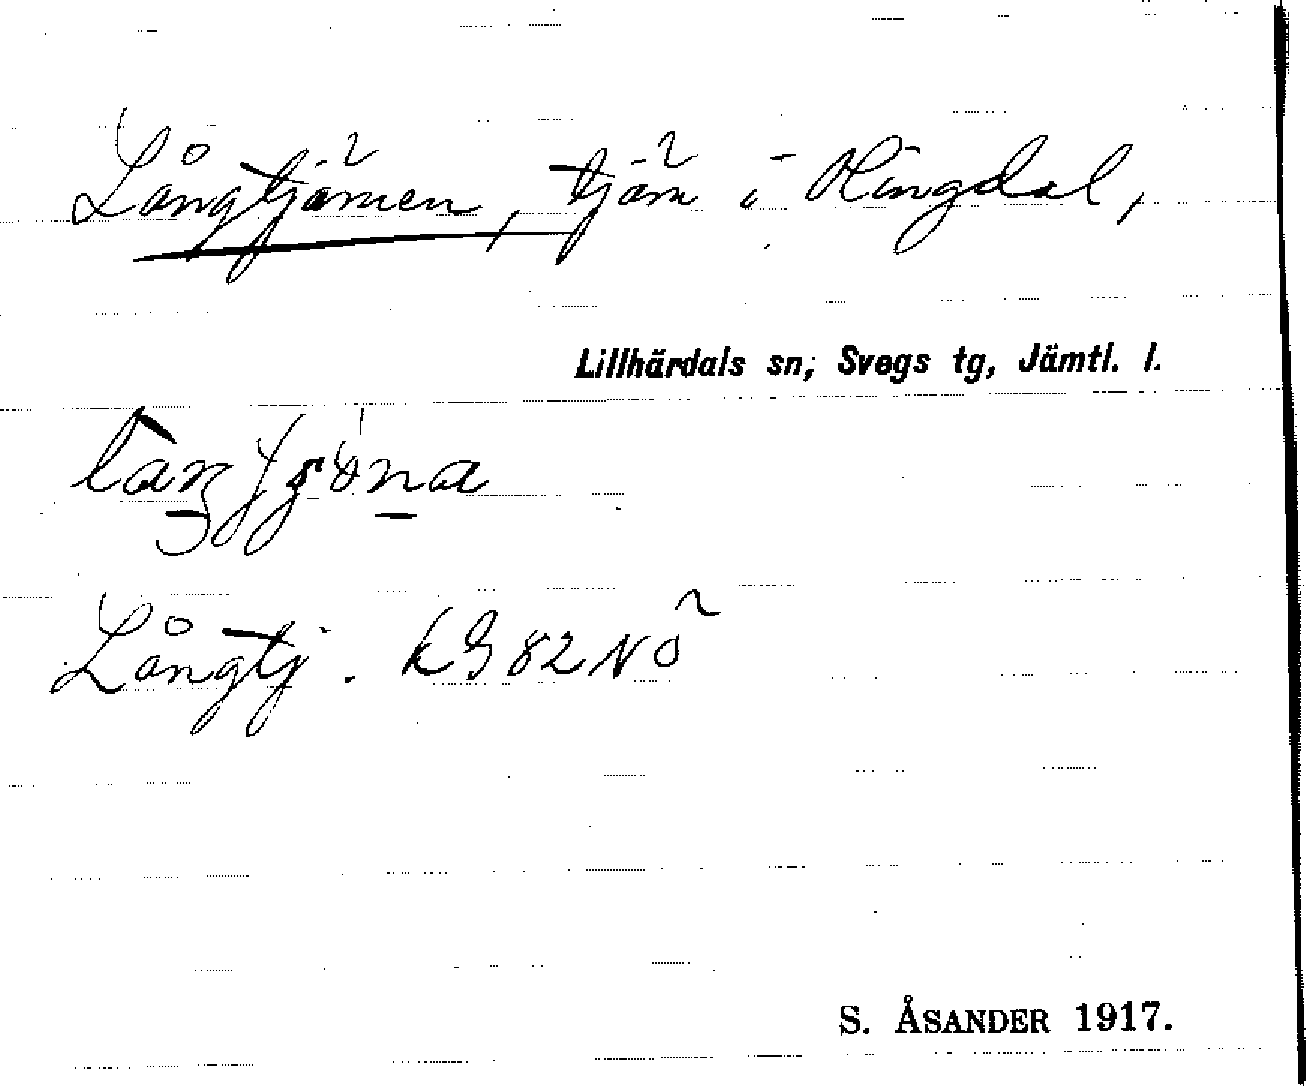 Långtjärnen, tjärn i Ringdal,
Lillhärdals sn; Svegs tg, Jämtl. l.
Långtj. KG 82 NÖ
S. ÅSANDER 1917.